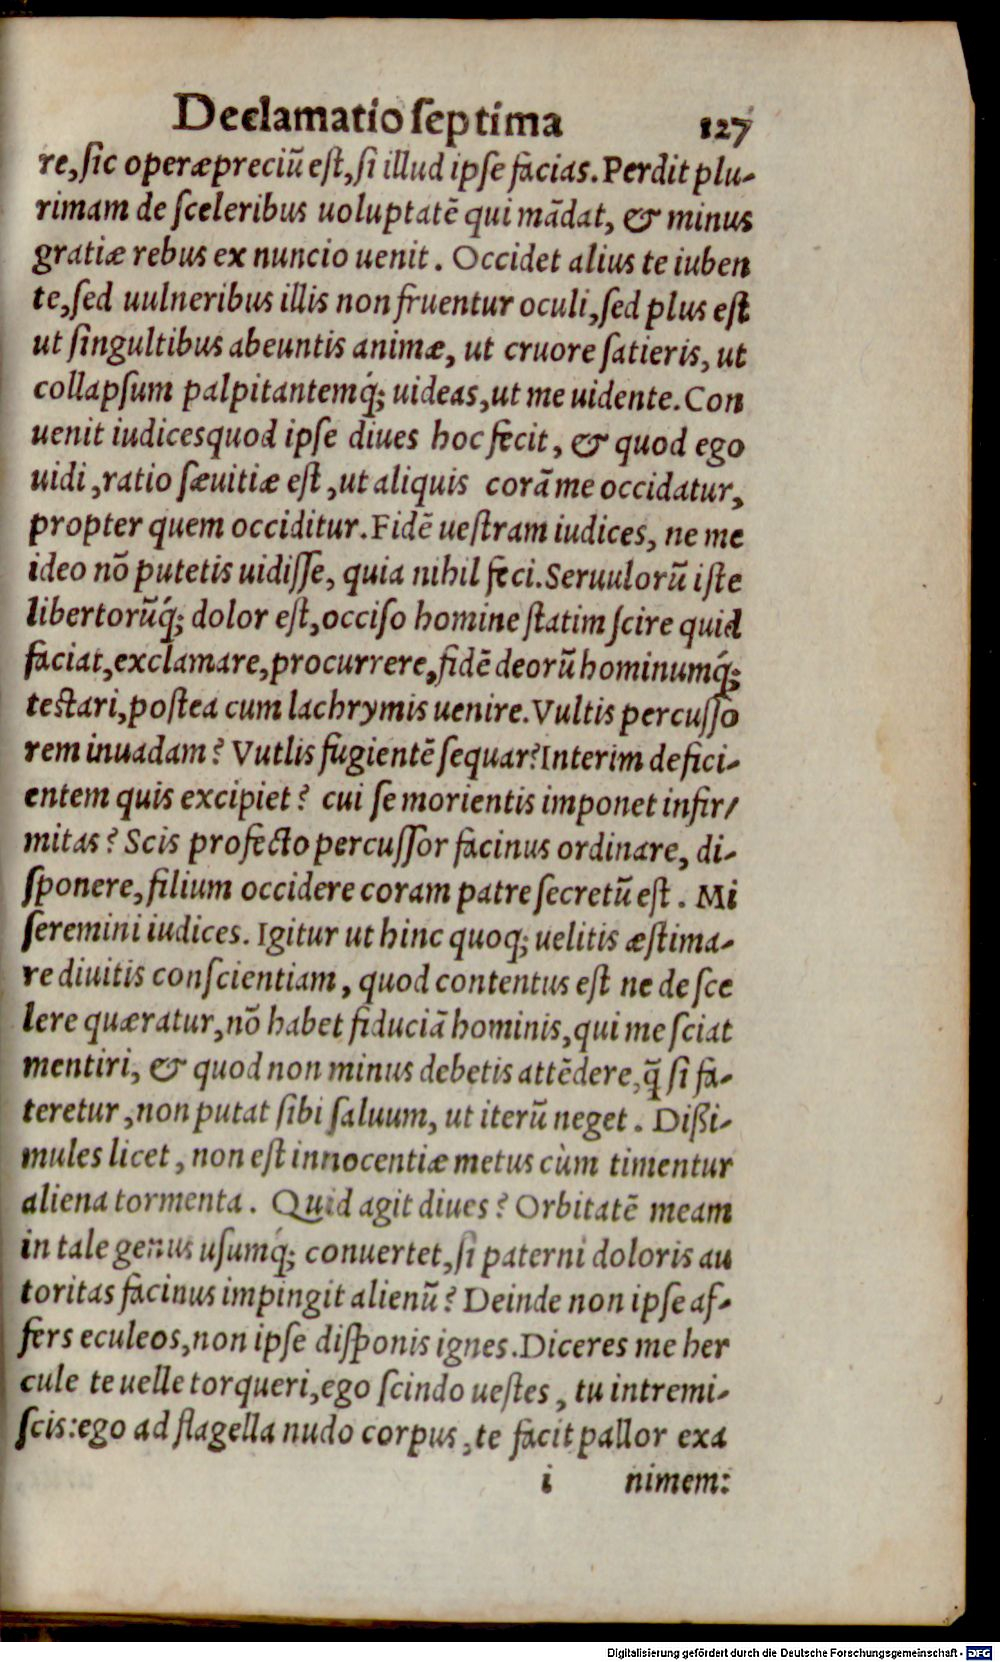 Declamatio ſeptima 127
re, ſic operæpreciũ eſt, ſi illud ipſe facias. Perdit plu-
rimam de ſceleribus uoluptatẽ qui mãdat, & minus
gratiæ rebus ex nuncio uenit. Occidet alius te iuben
te, ſed uulneribus illis non fruentur oculi, ſed plus eſt
ut ſingultibus abeuntis animæ, ut cruore ſatieris, ut
collapſum palpitantemq́; uideas, ut me uidente. Con
uenit iudicesquod ipſe diues hoc fecit, & quod ego
uidi, ratio ſæuitiæ eſt, ut aliquis corã me occidatur,
propter quem occiditur. Fidẽ ueſtram iudices, ne me
ideo nõ putetis uidiſſe, quia nihil feci. Seruulorũ iſte
libertorũq́; dolor eſt, occiſo homine ſtatim ſcire quid
faciat, exclamare, procurrere, fidẽ deorũ hominumq́;
teſtari, poſtea cum lachrymis uenire. Vultis percuſſo
rem inuadam? Vutlis fugientẽ ſequar? Interim defici-
entem quis excipiet? cui ſe morientis imponet infir-
mitas? Scis profecto percuſſor facinus ordinare, di-
ſponere, filium occidere coram patre ſecretũ eſt. Mi
ſeremini iudices. Igitur ut hinc quoq; uelitis æſtima-
re diuitis conſcientiam, quod contentus eſt ne de ſce
lere quæratur, nõ habet fiduciã hominis, qui me ſciat
mentiri, & quod non minus debetis attẽdere, q̃ ſi fa-
teretur, non putat ſibi ſaluum, ut iterũ neget. Diſſi-
mules licet, non eſt innocentiæ metus cùm timentur
aliena tormenta. Quid agit diues? Orbitatẽ meam
in tale genus uſumq́; conuertet, ſi paterni doloris au
toritas facinus impingit alienũ? Deinde non ipſe af-
fers eculeos, non ipſe diſponis ignes. Diceres me her
cule te uelle torqueri, ego ſcindo ueſtes, tu intremi-
ſcis: ego ad flagella nudo corpus, te facit pallor exa
i nimem:
Digitalisierung gefördert durch die Deutsche Forschungsgemeinschaft - DFG